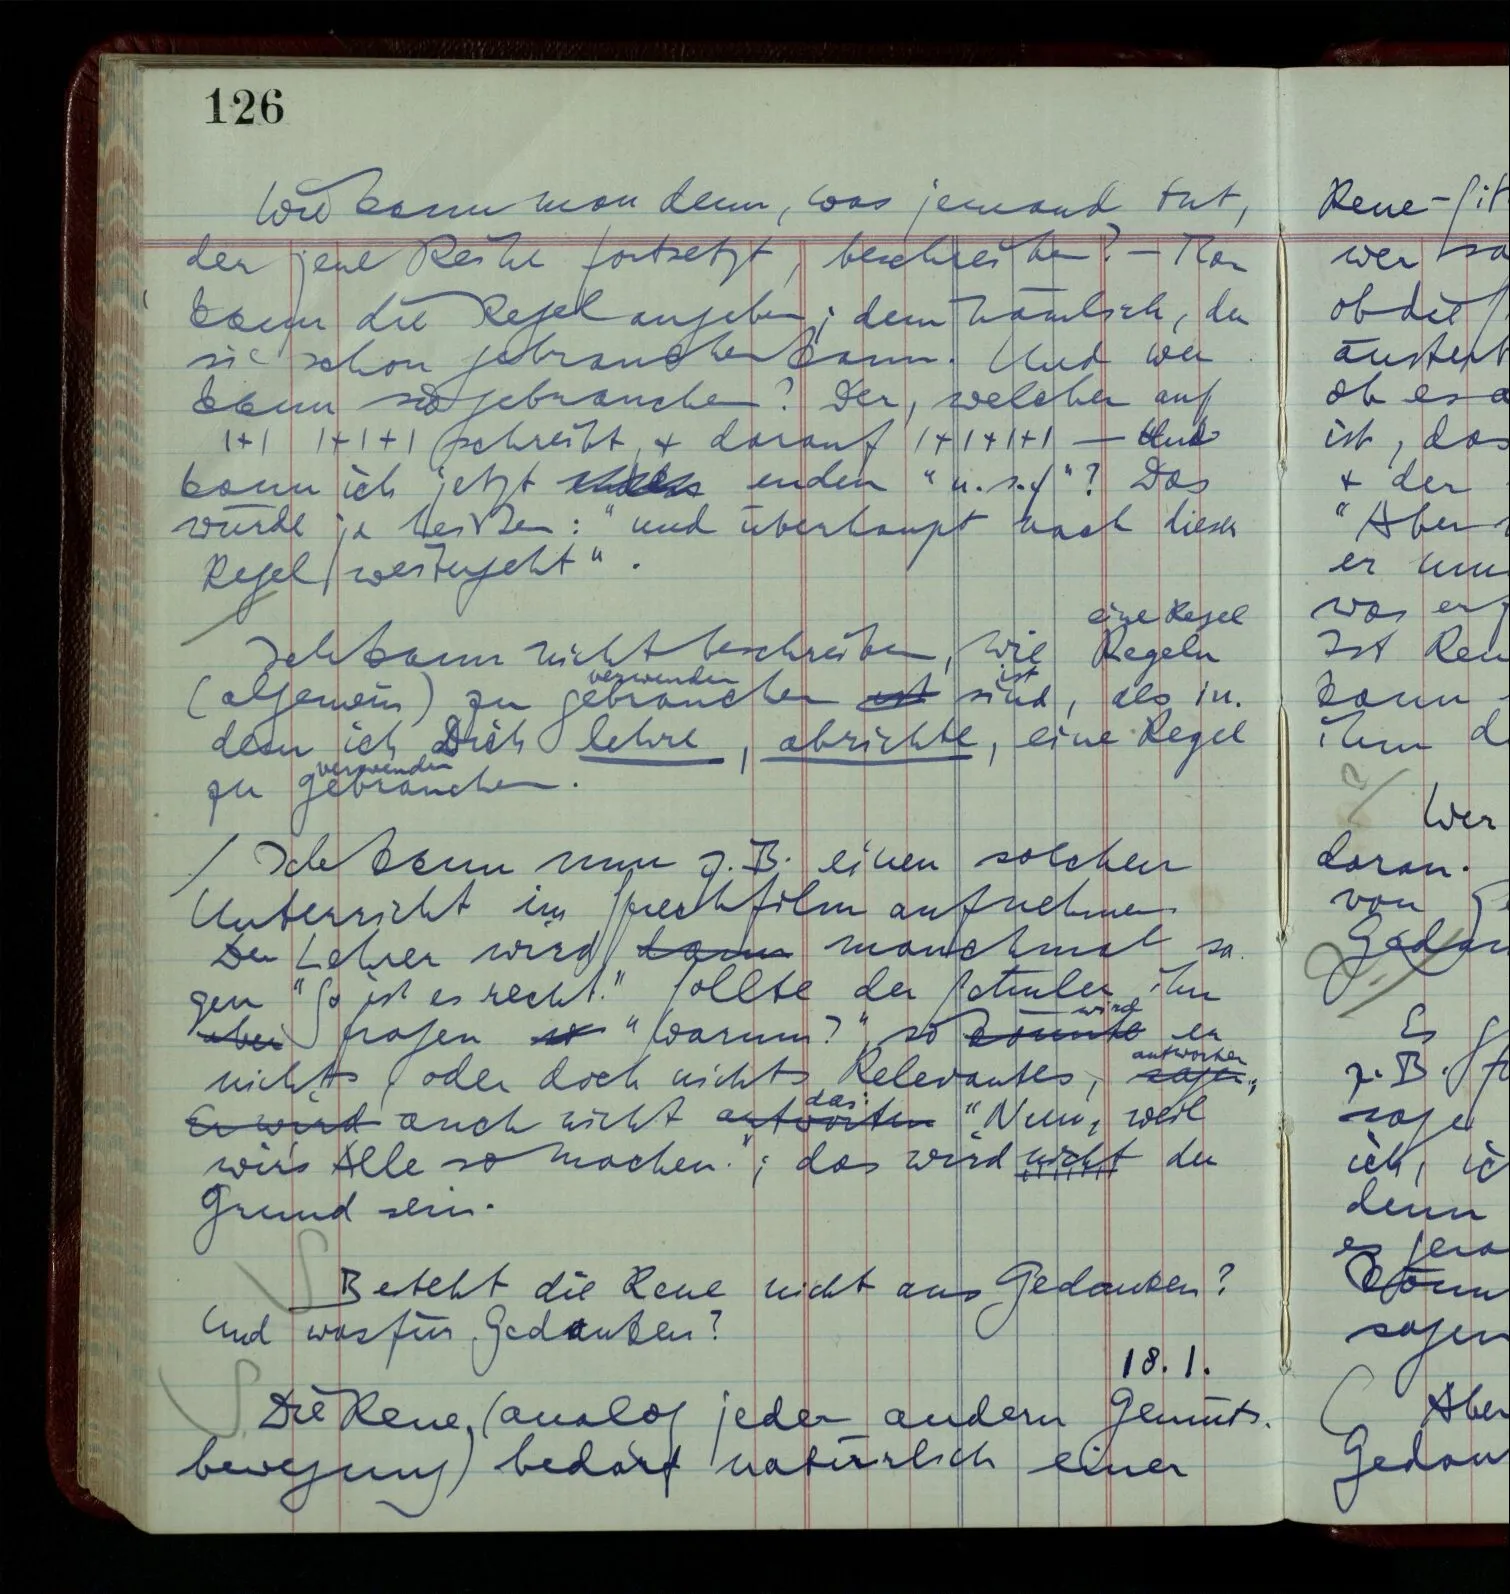 126
Wie kann man denn, was jemand tut,
der jene Reihe fortsetzt, beschreiben? – Man
kann die Regel angeben; dem nämlich, der
sie schon gebrauchen kann. Und wer
kann sie gebrauchen? Der, welcher auf
1+1 1+1+1 schreibt, & darauf 1+1+1+1 — Und
kann ich jetzt enden "u.s.f"? Das
würde ja heißen: "und überhaupt nach dieser
Regel weitergeht".
eine Regel
Ich kann nicht beschreiben, wie Regeln
verwenden ist
(allgemein) zu gebrauchen ist sind, als in-
dem ich Dich lehre, abrichte, eine Regel
verwenden
zu gebrauchen.
/ Ich kann nun z.B. einen solchen
Unterricht im Sprechfilm aufnehmen
Der Lehrer wird dann manchmal sa-
gen "So ist es recht." Sollte der Schüler ihn
wird
aber fragen so "Warum?", so könnte er
antworten
nichts, oder doch nichts Relevantes, sagen;
das:
Er wird auch nicht antworten "Nun, weil
wir's Alle so machen."; das wird nicht der
Grund sein.
Besteht die Reue nicht aus Gedanken?
Und was für Gedanken?
18.1.
Die Reue, (analog jeder andern Gemüts-
bewegung) bedarf natürlich einer
wer
ist, das
& der
"Aber
er
was er
kann
ihm
Wer
daran.
von
Es
z.B.
sage
ich,
denn
sagen
Aber